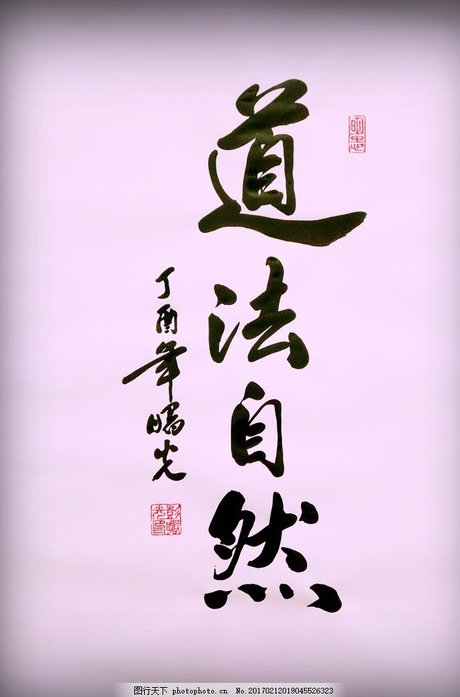 道法自然
丁酉年曙光
图行天下 photophoto.cn No.20170212019045526323